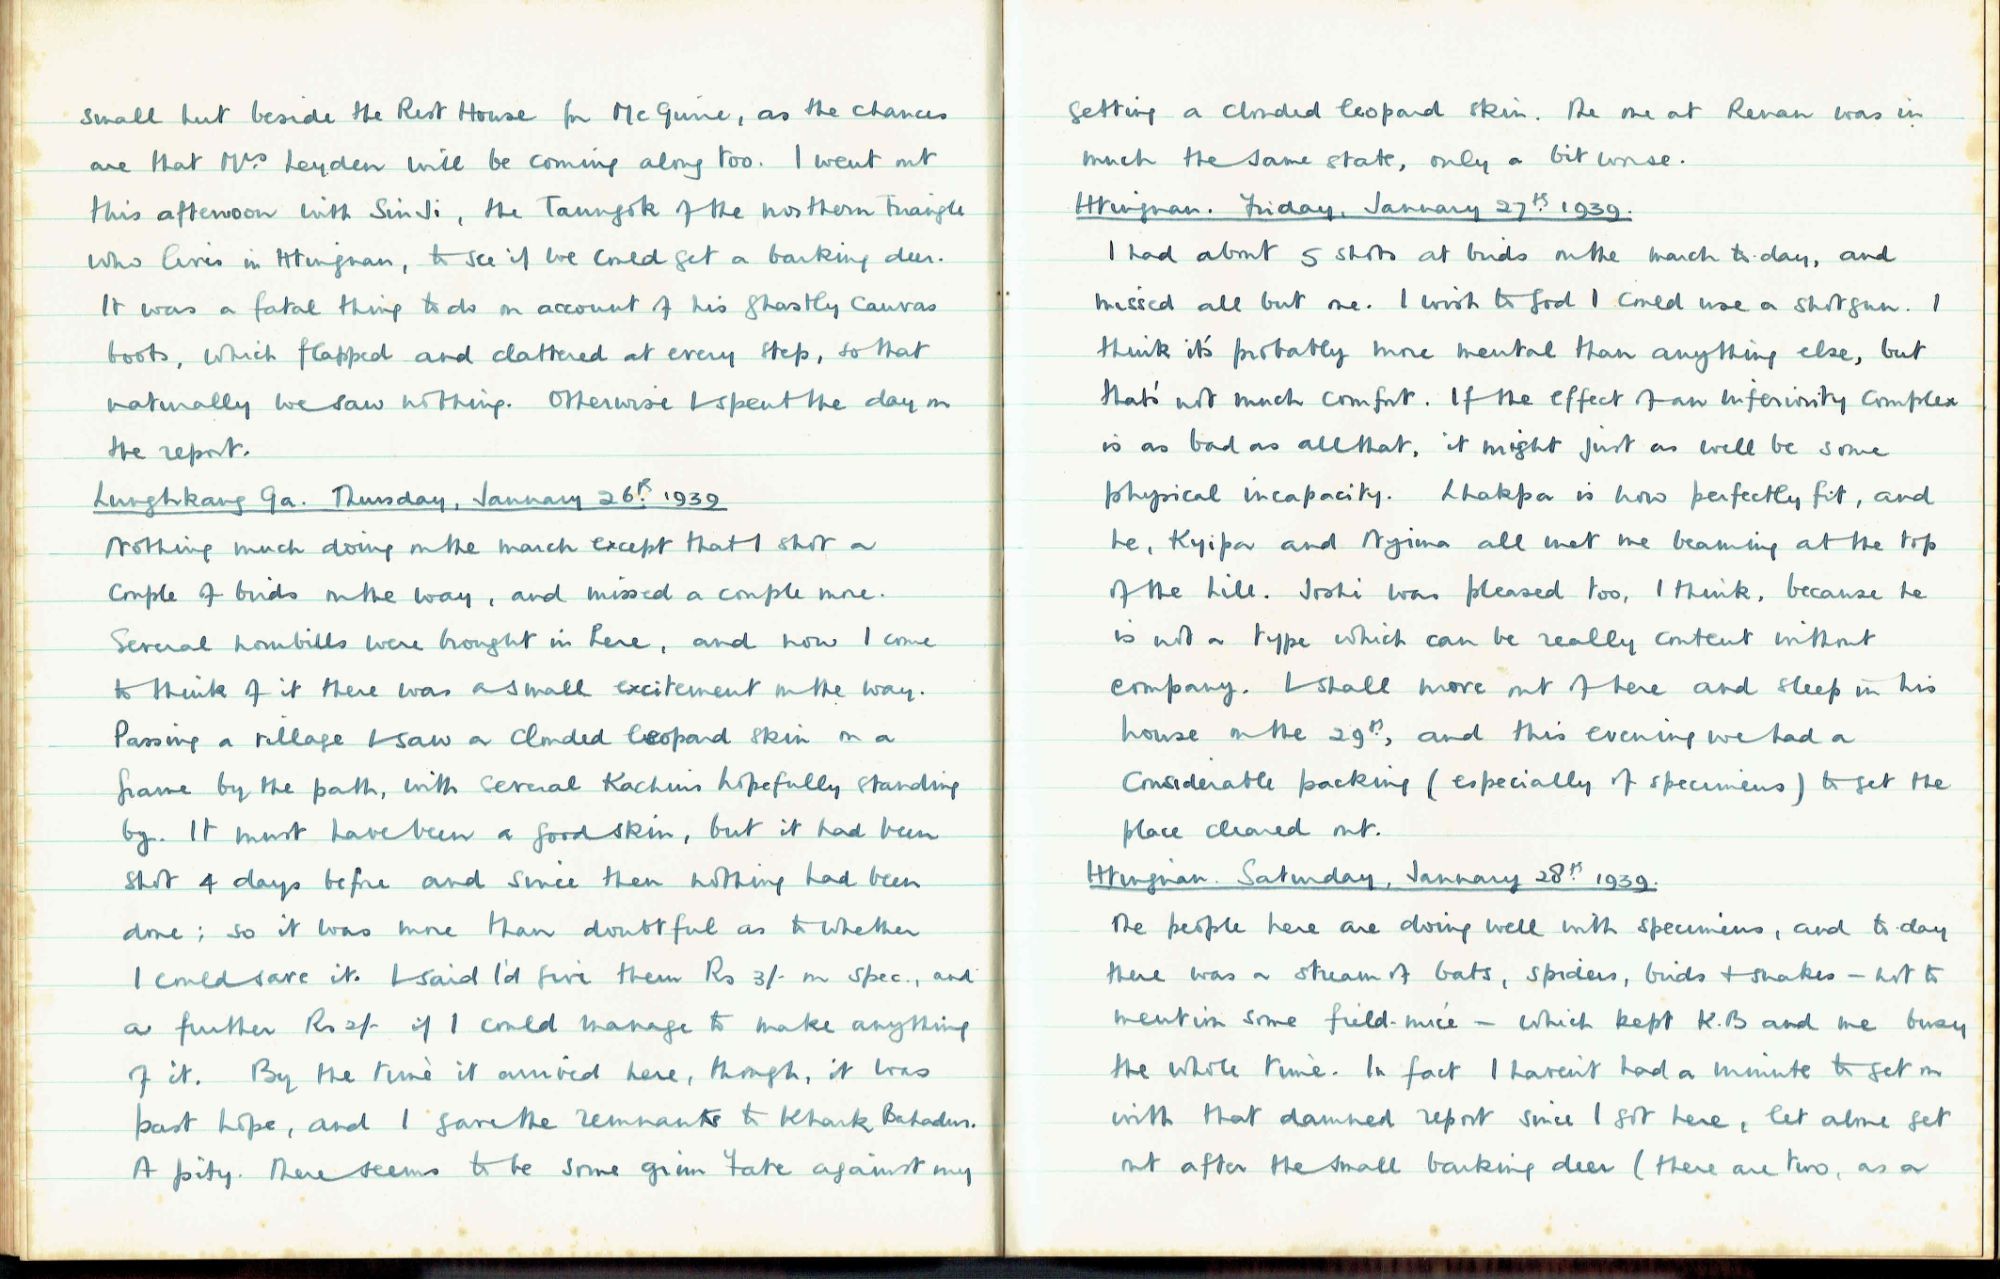 small hut beside the Rest House for McGuire, as the chances
are that Mrs Leyden will be coming along too. I went out
this afternoon with Sin Ji, the Taungok of the northern Triangle
who lives in Htingnan, to see if we could get a barking deer.
It was a fatal thing to do on account of his ghastly canvas
boots, which flapped and clattered at every step, so that
naturally we saw nothing. Otherwise I spent the day on
the report.
Lunghkang Ga. Thursday, January 26th 1939
Nothing much doing on the march except that I shot a
couple of birds on the way, and missed a couple more.
Several hornbills were brought in here, and now I come
to think of it there was a small excitement on the way.
Passing a village I saw a clouded leopard skin on a
frame by the path, with several Kachins hopefully standing
by. It must have been a good skin, but it had been
shot 4 days before and since then nothing had been
done; so it was more than doubtful as to whether
I could save it. I said I'd give them Rs 3/- on spec., and
a further Rs 2/- if I could manage to make anything
of it. By the time it arrived here, though, it was
past hope, and I gave the remnants to Khark Bahadur.
A pity. There seems to be some grim Fate against my
getting a clouded leopard skin. The one at Renan was in
much the same state, only a bit worse.
Htingnan. Friday, January 27th 1939.
I had about 5 shots at birds on the march to-day, and
missed all but one. I wish to God I could use a shotgun. I
think it's probably more mental than anything else, but
that's not much comfort. If the effect of an inferiority complex
is as bad as all that, it might just as well be some
physical incapacity. Lhakpa is now perfectly fit, and
he, Kyipa and Nyima all met me beaming at the top
of the hill. Joshi was pleased too, I think, because he
is not a type which can be really content without
company. I shall move out of here and sleep in his
house on the 29th, and this evening we had a
considerable packing (especially of specimens) to get the
place cleared out.
Htingnan. Saturday, January 28th 1939.
The people here are doing well with specimens, and to-day
there was a stream of bats, spiders, birds + snakes – not to
mention some field-mice – which kept K.B and me busy
the whole time. In fact I haven't had a minute to get on
with that damned report since I got here, let alone get
out after the small barking deer (there are two, as a